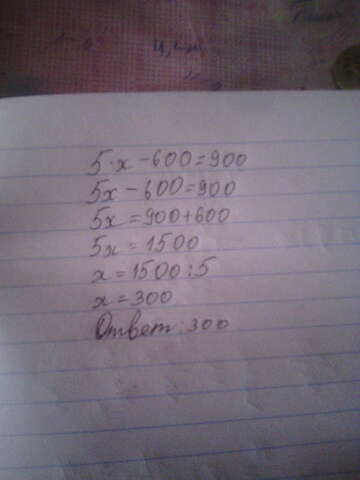 5·x-600=900
5x-600=900
5x=900+600
5x=1500
x=1500:5
x=300
Ответ:300